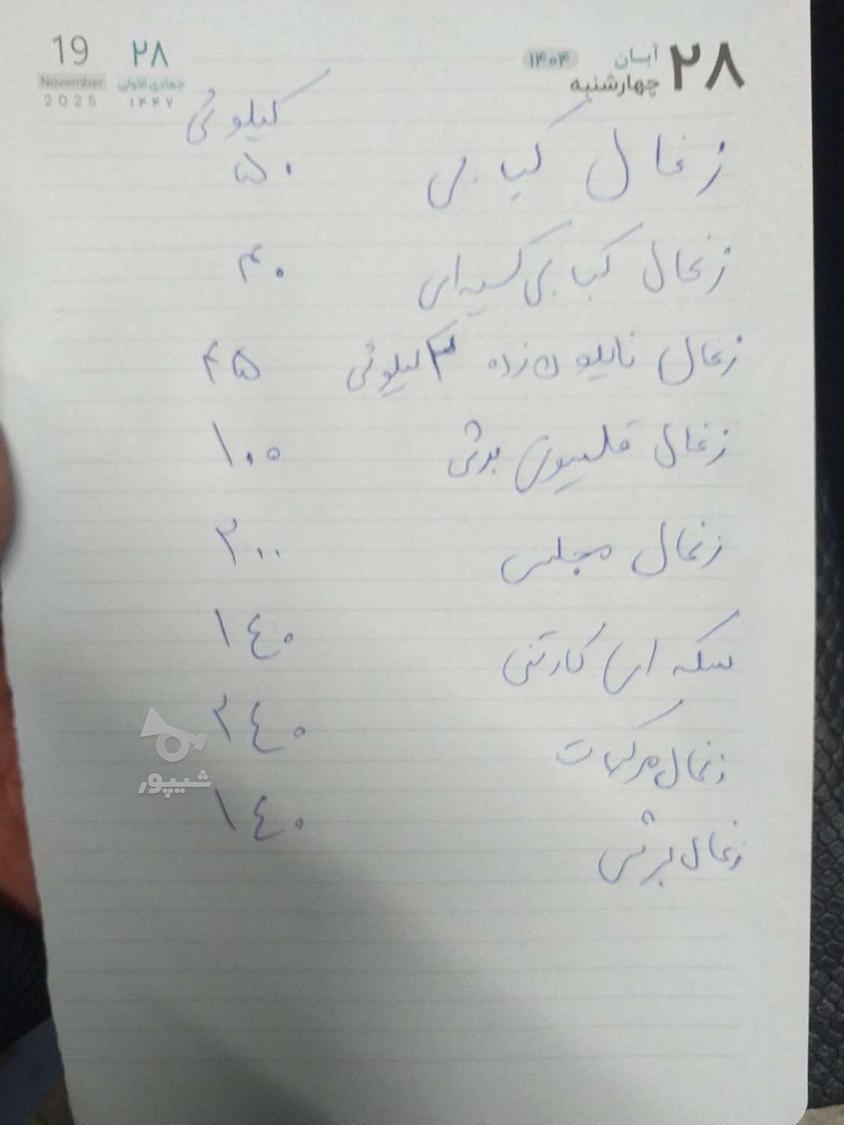 ۲۸ آبان ۱۴۰۴ چهارشنبه
۲۸ جمادی الاولی ۱۴۴۷
19 November 2025
کیلوئی
زغال کبابی ۵۰
زغال کبابی کسیه ای ۴۰
زغال نایلون زده ۳ کیلوئی ۴۵
زغال قلیون برشی ۱۰۰
زغال مجلسی ۲۰۰
سکه ای کارتنی ۱٤۰
زغال مرکبات ۲٤۰
زغال برشی ۱٤۰
شیپور